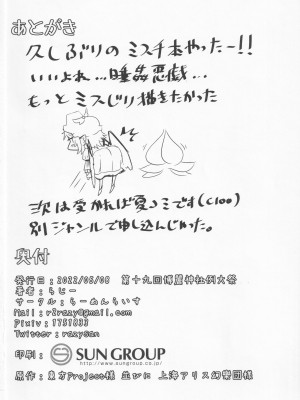 あとがき
久しぶりのミスチ本やったー!!
いいよね…睡姦悪戯…
もっとミスじり描きたかった
次は受かれば夏コミです(C100)
別ジャンルで申し込んじゃった。
奥付
発行日:2022/05/08 第十九回博麗神社例大祭
著者:らじー
サークル:らーめんらいす
Mail:r2razy@gmail.com
Pixiv:1751833
Twitter:razysan
印刷: SUN GROUP
http://www.sungroup.co.jp
原作:東方Project様 並びに 上海アリス幻樂団様